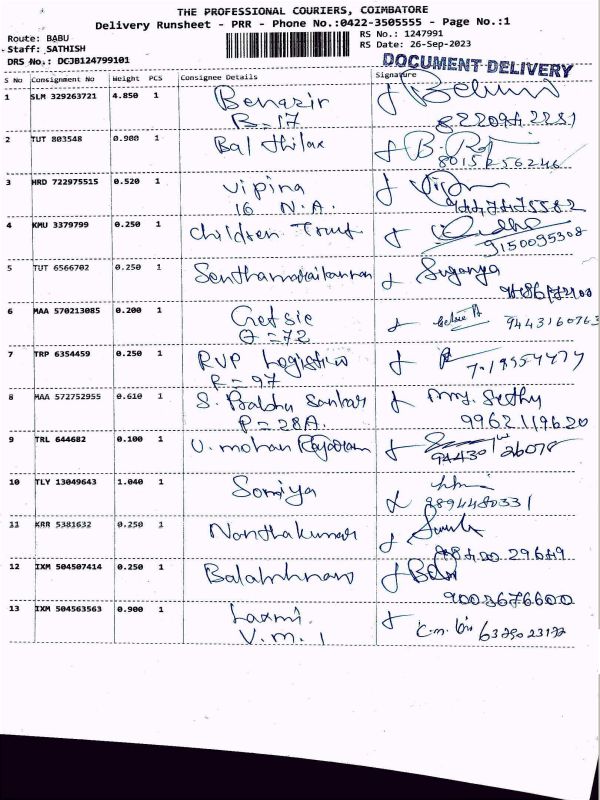 THE PROFESSIONAL COURIERS, COIMBATORE
Delivery Runsheet - PRR - Phone No.:0422-3505555 - Page No.:1
Route: BABU
Staff: SATHISH
DRS No.: DCJB124799101
RS No.: 1247991
RS Date: 26-Sep-2023
DOCUMENT DELIVERY
S No Consignment No Weight PCS Consignee Details Signature
1 SLM 329263721 4.850 1 Benazir
B=17
2 TUT 803548 0.900 1 Bal thilax
8015256246
3 HRD 722975515 0.520 1 Vipina
16 N.A.
4 KMU 3379799 0.250 1 Children Trust
9150095308
5 TUT 6566702 0.250 1 Suganya
6 MAA 570213085 0.200 1 Getsie 9443160763
Q=72
7 TRP 6354459 0.250 1 RVP Logistics
R=97
8 MAA 572752955 0.610 1 S. Babhu Sankar
P=28A. 9962119620
9 TRL 644682 0.100 1 V. mohan Rajaram
94430 26078
10 TLY 13049643 1.040 1 Somiya
9894480331
11 KRR 5381632 0.250 1 Nanthakumar
12 IXM 504507414 0.250 1
9003676600
13 IXM 504563563 0.900 1 Laxmi.
V.M.